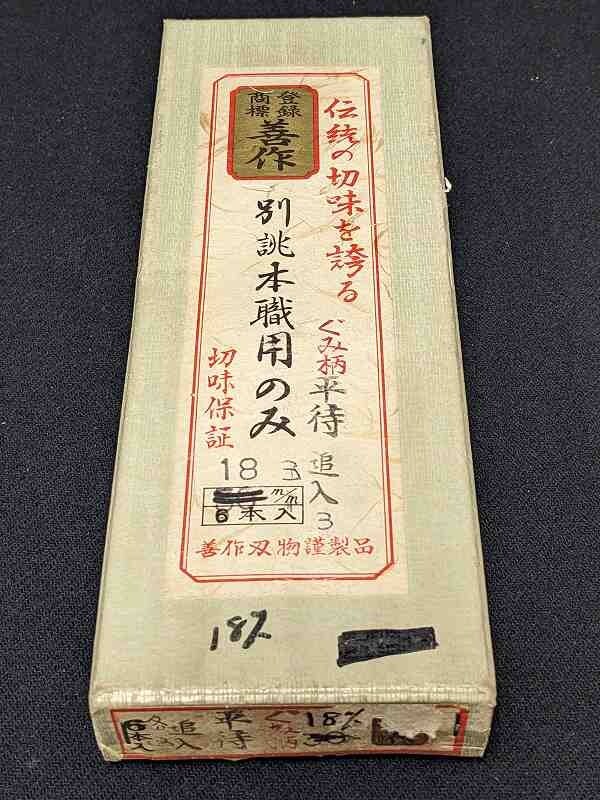 登録
商標
善作
伝統の切味を誇る
別誂本職用のみ
ぐみ柄
平待
追入
3
切味保証
18 3
m/m
6本入
善作刃物謹製品
18%
6本入
追入
平待
ぐみ柄
18%